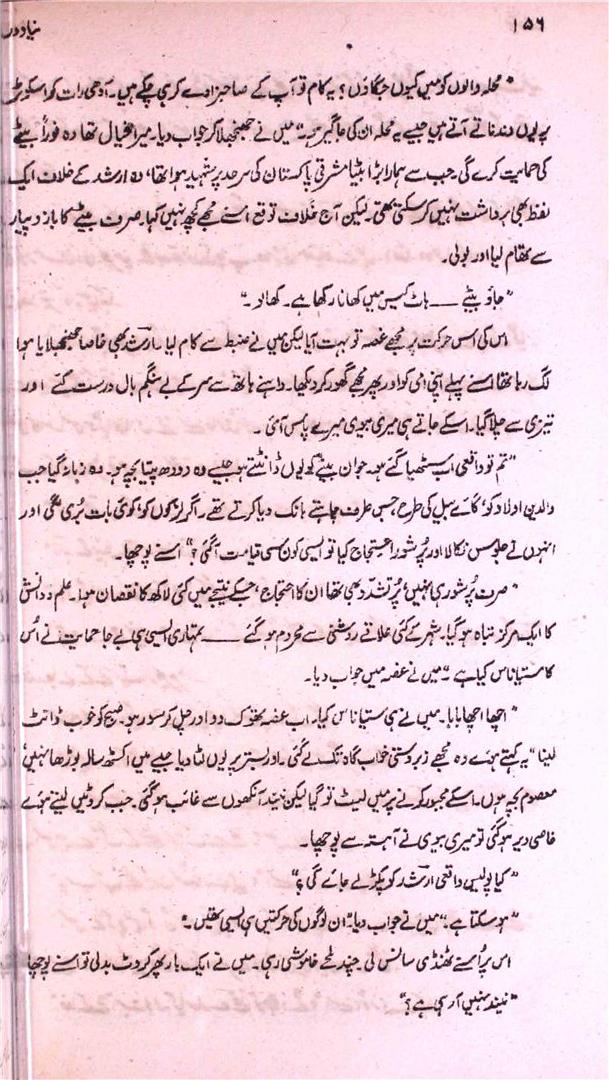 ۱۵۶
نیا دور
"محلہ والوں کو میں کیوں جگاؤں؟ یہ کام تو آپ کے صاحبزادے کر ہی چکے ہیں۔ آدھی رات کو اسکوٹر
پر یوں دندناتے آتے ہیں جیسے یہ محلہ ان کی جاگیر ہو۔" میں نے جھنجھلا کر جواب دیا۔ میرا خیال تھا وہ فوراً بیٹے
کی حمایت کرے گی۔ جب سے ہمارا بڑا بیٹا مشرقی پاکستان کی سرحد پر شہید ہوا تھا، وہ ارشد کے خلاف ایک
لفظ بھی برداشت نہیں کر سکتی تھی۔ لیکن آج خلاف توقع اسنے مجھے کچھ نہیں کہا۔ صرف بیٹے کا بازو پیار
سے تھام لیا اور بولی۔
"جاؤ بیٹے ــــ ہاٹ کیس میں کھانا رکھا ہے۔ کھا لو۔"
اس کی اس حرکت پر مجھے غصہ تو بہت آیا لیکن میں نے ضبط سے کام لیا۔ ارشد بھی خاصا جھنجھلایا ہوا
لگ رہا تھا اسنے پہلے اپنی امی کو اور پھر مجھے گھور کر دیکھا۔ داہنے ہاتھ سے سر کے بے ہنگم بال درست کئے اور
تیزی سے چلا گیا۔ اسکے جاتے ہی میری بیوی میرے پاس آئی۔
"تم تو واقعی اب سٹھیا گئے ہو۔ جوان بیٹے کو یوں ڈانٹتے ہو جیسے وہ دودھ پیتا بچہ ہو۔ وہ زمانہ گیا جب
والدین اولاد کو، گائے بیل کی طرح، جس طرف چاہتے ہانک دیا کرتے تھے۔ اگر لڑکوں کو، کوئی بات بُری لگی اور
انہوں نے جلوس نکالا اور پُر شور احتجاج کیا تو ایسی کون سی قیامت آگئی؟" اسنے پوچھا۔
"صرف پُر شور ہی نہیں، پُر تشدد بھی تھا ان کا احتجاج، جسکے نتیجے میں کئی لاکھ کا نقصان ہوا۔ علم و دانش
کا ایک مرکز تباہ ہو گیا۔ شہر کے کئی علاقے روشنی سے محروم ہو گئے ــــ تمہاری ایسی ہی بے جا حمایت نے اُس
کا ستیاناس کیا ہے۔" میں نے غصہ میں جواب دیا۔
"اچھا اچھا بابا۔ میں نے ہی ستیاناس کیا۔ اب غصہ تھوک دو اور چل کر سو رہو۔ صبح کو خوب ڈانٹ
لینا" یہ کہتے ہوئے وہ مجھے زبردستی خواب گاہ تک لے گئی۔ اور بستر پر یوں لٹا دیا جیسے میں اکسٹھ سالہ بوڑھا نہیں،
معصوم بچہ ہوں۔ اسکے مجبور کرنے پر میں لیٹ تو گیا لیکن نیند آنکھوں سے غائب ہو گئی۔ جب کروٹیں لیتے ہوئے
خاصی دیر ہو گئی تو میری بیوی نے آہستہ سے پوچھا۔
"کیا پولیس واقعی ارشد کو پکڑ لے جائے گی؟"
"ہو سکتا ہے۔" میں نے جواب دیا "ان لوگوں کی حرکتیں ہی ایسی تھیں۔"
اس پر اُسنے ٹھنڈی سانس لی۔ چند لمحے خاموشی رہی۔ میں نے ایک بار پھر کروٹ بدلی تو اسنے پوچھا
"نیند نہیں آ رہی ہے؟"